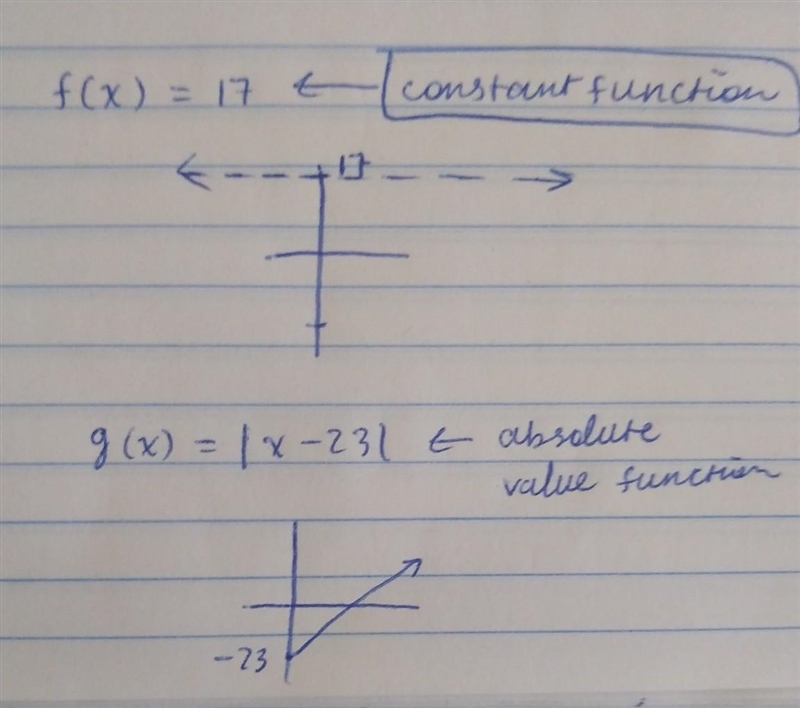 f(x) = 17 ← constant function
17
g(x) = |x - 23| ← absolute
value function
-23